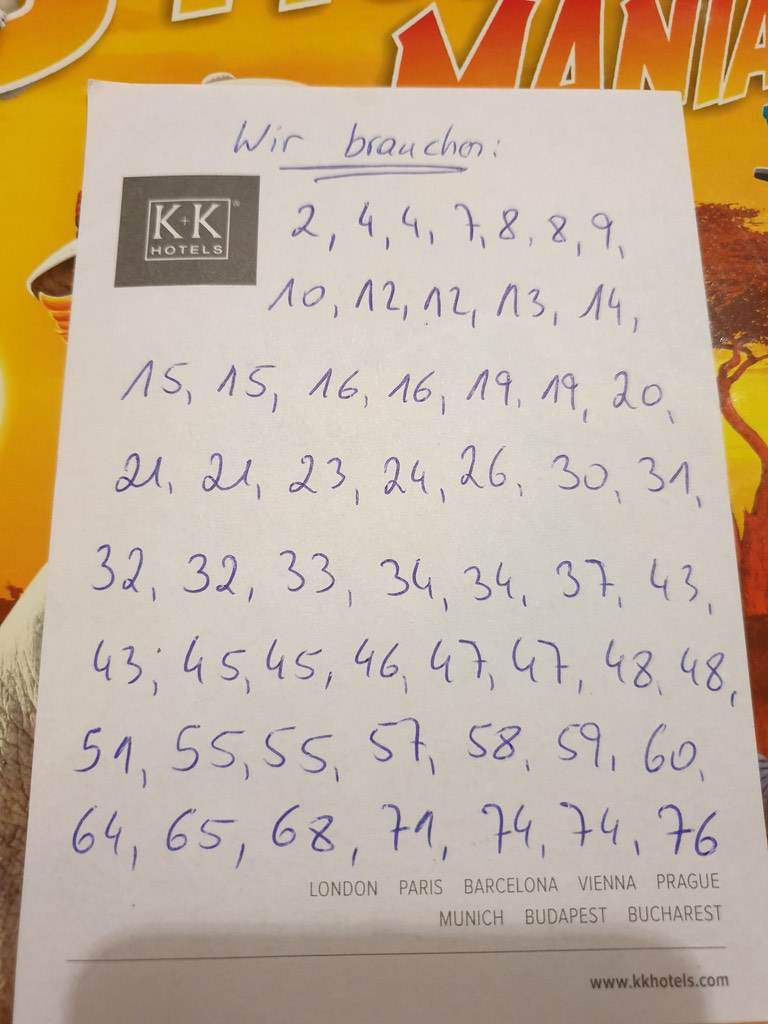 MANIA
Wir brauchen:
K+K®
HOTELS
2, 4, 4, 7, 8, 8, 9,
10, 12, 12, 13, 14,
15, 15, 16, 16, 19, 19, 20,
21, 21, 23, 24, 26, 30, 31,
32, 32, 33, 34, 34, 37, 43,
43, 45, 45, 46, 47, 47, 48, 48,
51, 55, 55, 57, 58, 59, 60,
64, 65, 68, 71, 74, 74, 76
LONDON PARIS BARCELONA VIENNA PRAGUE
MUNICH BUDAPEST BUCHAREST
www.kkhotels.com